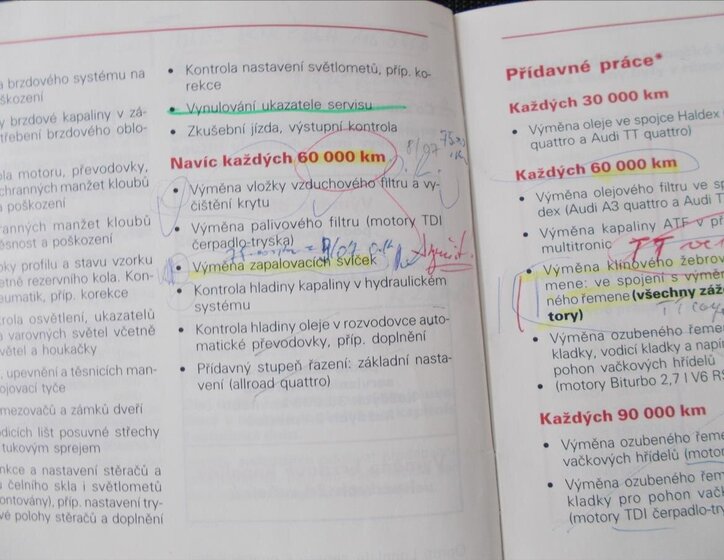 a brzdového systému na
oškození
y brzdové kapaliny v zá-
třebení brzdového oblo-
ola motoru, převodovky,
chranných manžet kloubů
a poškození
ranných manžet kloubů
ěsnost a poškození
oky profilu a stavu vzorku
etně rezervního kola. Kon-
eumatik, příp. korekce
rola osvětlení, ukazatelů
a varovných světel včetně
větel a houkačky
, upevnění a těsnicích man-
ojovací tyče
mezovačů a zámků dveří
odicích lišt posuvné střechy
tukovým sprejem
nkce a nastavení stěračů a
u čelního skla i světlometů
ontovány), příp. nastavení try-
vé polohy stěračů a doplnění
• Kontrola nastavení světlometů, příp. ko-
rekce
• Vynulování ukazatele servisu
• Zkušební jízda, výstupní kontrola
Navíc každých 60 000 km
8/07
• Výměna vložky vzduchového filtru a vy-
čištění krytu
• Výměna palivového filtru (motory TDI
čerpadlo-tryska)
• Výměna zapalovacích svíček
• Kontrola hladiny kapaliny v hydraulickém
systému
• Kontrola hladiny oleje v rozvodovce auto-
matické převodovky, příp. doplnění
• Přídavný stupeň řazení: základní nasta-
vení (allroad quattro)
Přídavné práce*
Každých 30 000 km
• Výměna oleje ve spojce Haldex
quattro a Audi TT quattro)
Každých 60 000 km
• Výměna olejového filtru ve sp
dex (Audi A3 quattro a Audi T
• Výměna kapaliny ATF v př
multitronic
TT
• Výměna klínového žebrov
mene: ve spojení s výměn
ného řemene (všechny záže
tory)
• Výměna ozubeného řeme
kladky, vodicí kladky a napín
pohon vačkových hřídelů
• (motory Biturbo 2,7 l V6 RS
Každých 90 000 km
• Výměna ozubeného řeme
vačkových hřídelů (motor
• Výměna ozubeného řem
kladky pro pohon vačkov
(motory TDI čerpadlo-trys